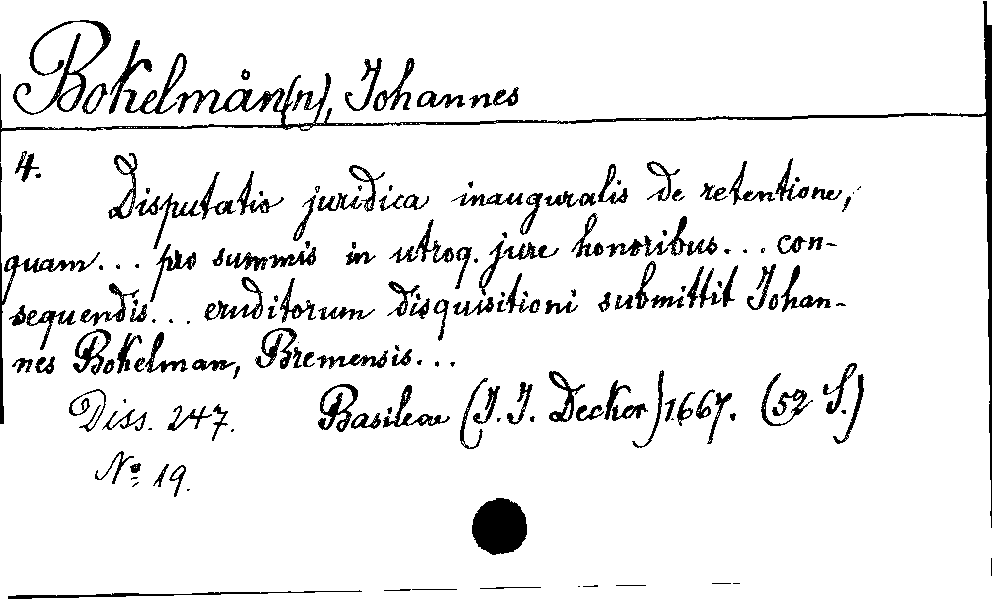 Bokelman(n), Johannes
4.
Disputatio juridica inauguralis de retentione,
quam... pro summis in utroq. jure honoribus... con-
sequendis... eruditorum disquisitioni submittit Johan-
nes Bokelman, Bremensis...
Diss. 247. Basileae (J. J. Decker) 1667. (52 S.)
No 19.